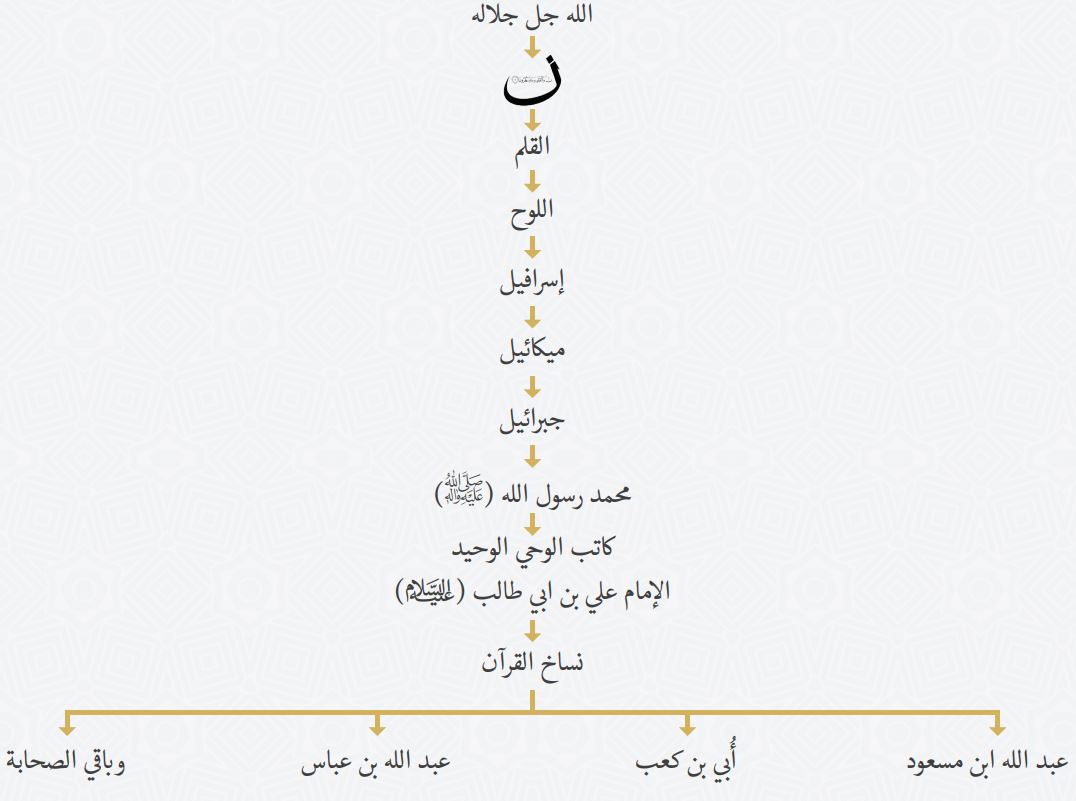 الله جل جلاله
ن
القلم
اللوح
إسرافيل
ميكائيل
جبرائيل
محمد رسول الله (صلى الله عليه وآله)
كاتب الوحي الوحيد
الإمام علي بن ابي طالب (عليه السلام)
نساخ القرآن
عبد الله ابن مسعود
أُبي بن كعب
عبد الله بن عباس
وباقي الصحابة